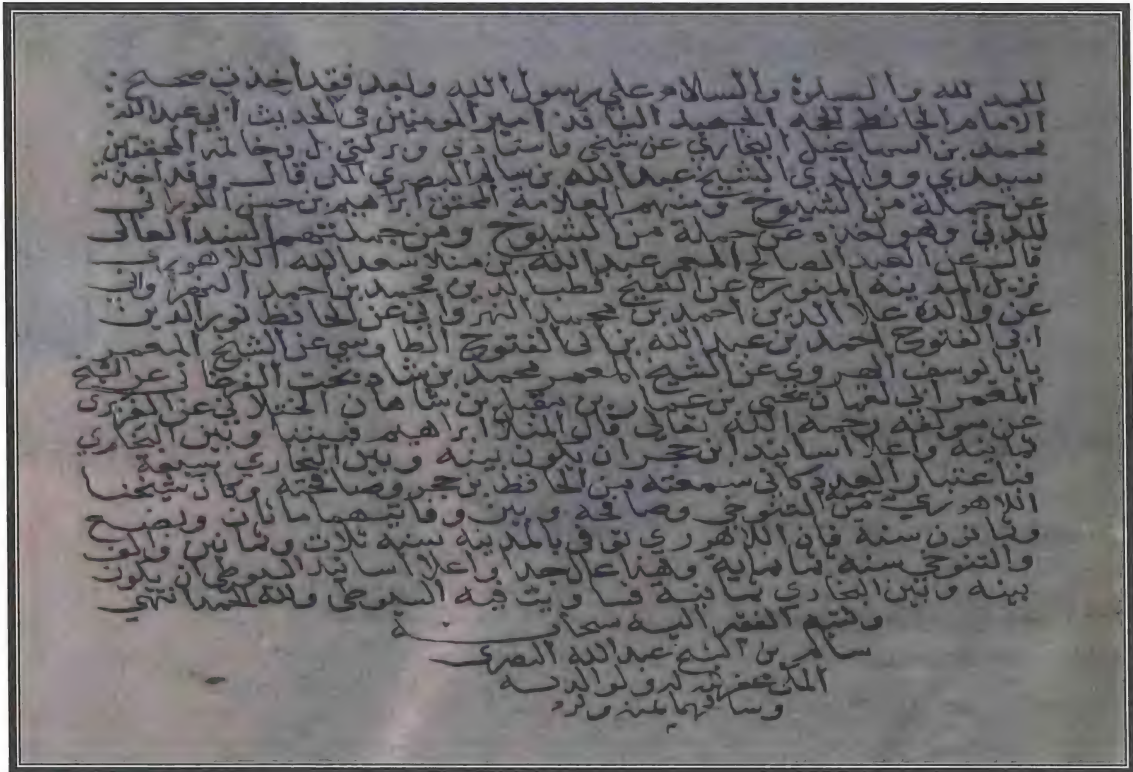 الحمد لله والصلاة والسلام على رسول الله وبعد فقد أخذت صحيح
الامام الحافظ الحجة الجهبذ الناقد امير المومنين في الحديث ابي عبد الله
محمد بن اسماعيل البخاري عن شيخي واستاذي وبركتي وخاتمة المحققين
سيدي ووالدي الشيخ عبد الله بن سالم البصري المكي قال وقد اخذته
عن جملة من الشيوخ ومنهم العلامة المحقق ابراهيم بن حسن الكوراني
المدني وهو اخذه عن جملة من الشيوخ ومن جملتهم السند العالي
قال عن العبد الصالح المعمر عبد الله بن منلا سعد الله اللاهوري
نزيل المدينة المنورة عن الشيخ قطب الدين محمد بن احمد النهرواني
عن والده علا الدين احمد بن محمد النهرواني عن الحافظ نور الدين
ابي الفتوح احمد بن عبد الله بن ابي الفتوح الطاوسي عن الشيخ المعمر
بابا يوسف الهروي عن الشيخ المعمر محمد بن شاد بخت الفرغاني عن الشيخ
المعمر ابي لقمان يحيى بن عمار بن مقبل بن شاهان الختلاني عن الفربري
عن مولفه رحمه الله تعالى قال المنلا ابراهيم فبيننا وبين البخاري
ثمانية واعلا اسانيد ابن حجر ان يكون بينه وبين البخاري سبعة
فباعتبار العدد كاني سمعته من الحافظ بن حجر وصافحته وكان شيخنا
اللاهوري من التنوخي وصافحه وبين وفاتيهما مائتان وبضع
وثمانون سنة فان اللاهوري توفي بالمدينة سنة ثلاث وثمانين والف
والتنوخي سنة ثمانماية وهذا عال جدا واعلا اسانيد السيوطي ان يكون
بينه وبين البخاري ثمانية فساويت فيه السيوطي ولله الحمد انتهى
وكتبه الفقير اليه سبحانه
سالم بن الشيخ عبد الله البصري
المكي غفر الله له ولوالديه